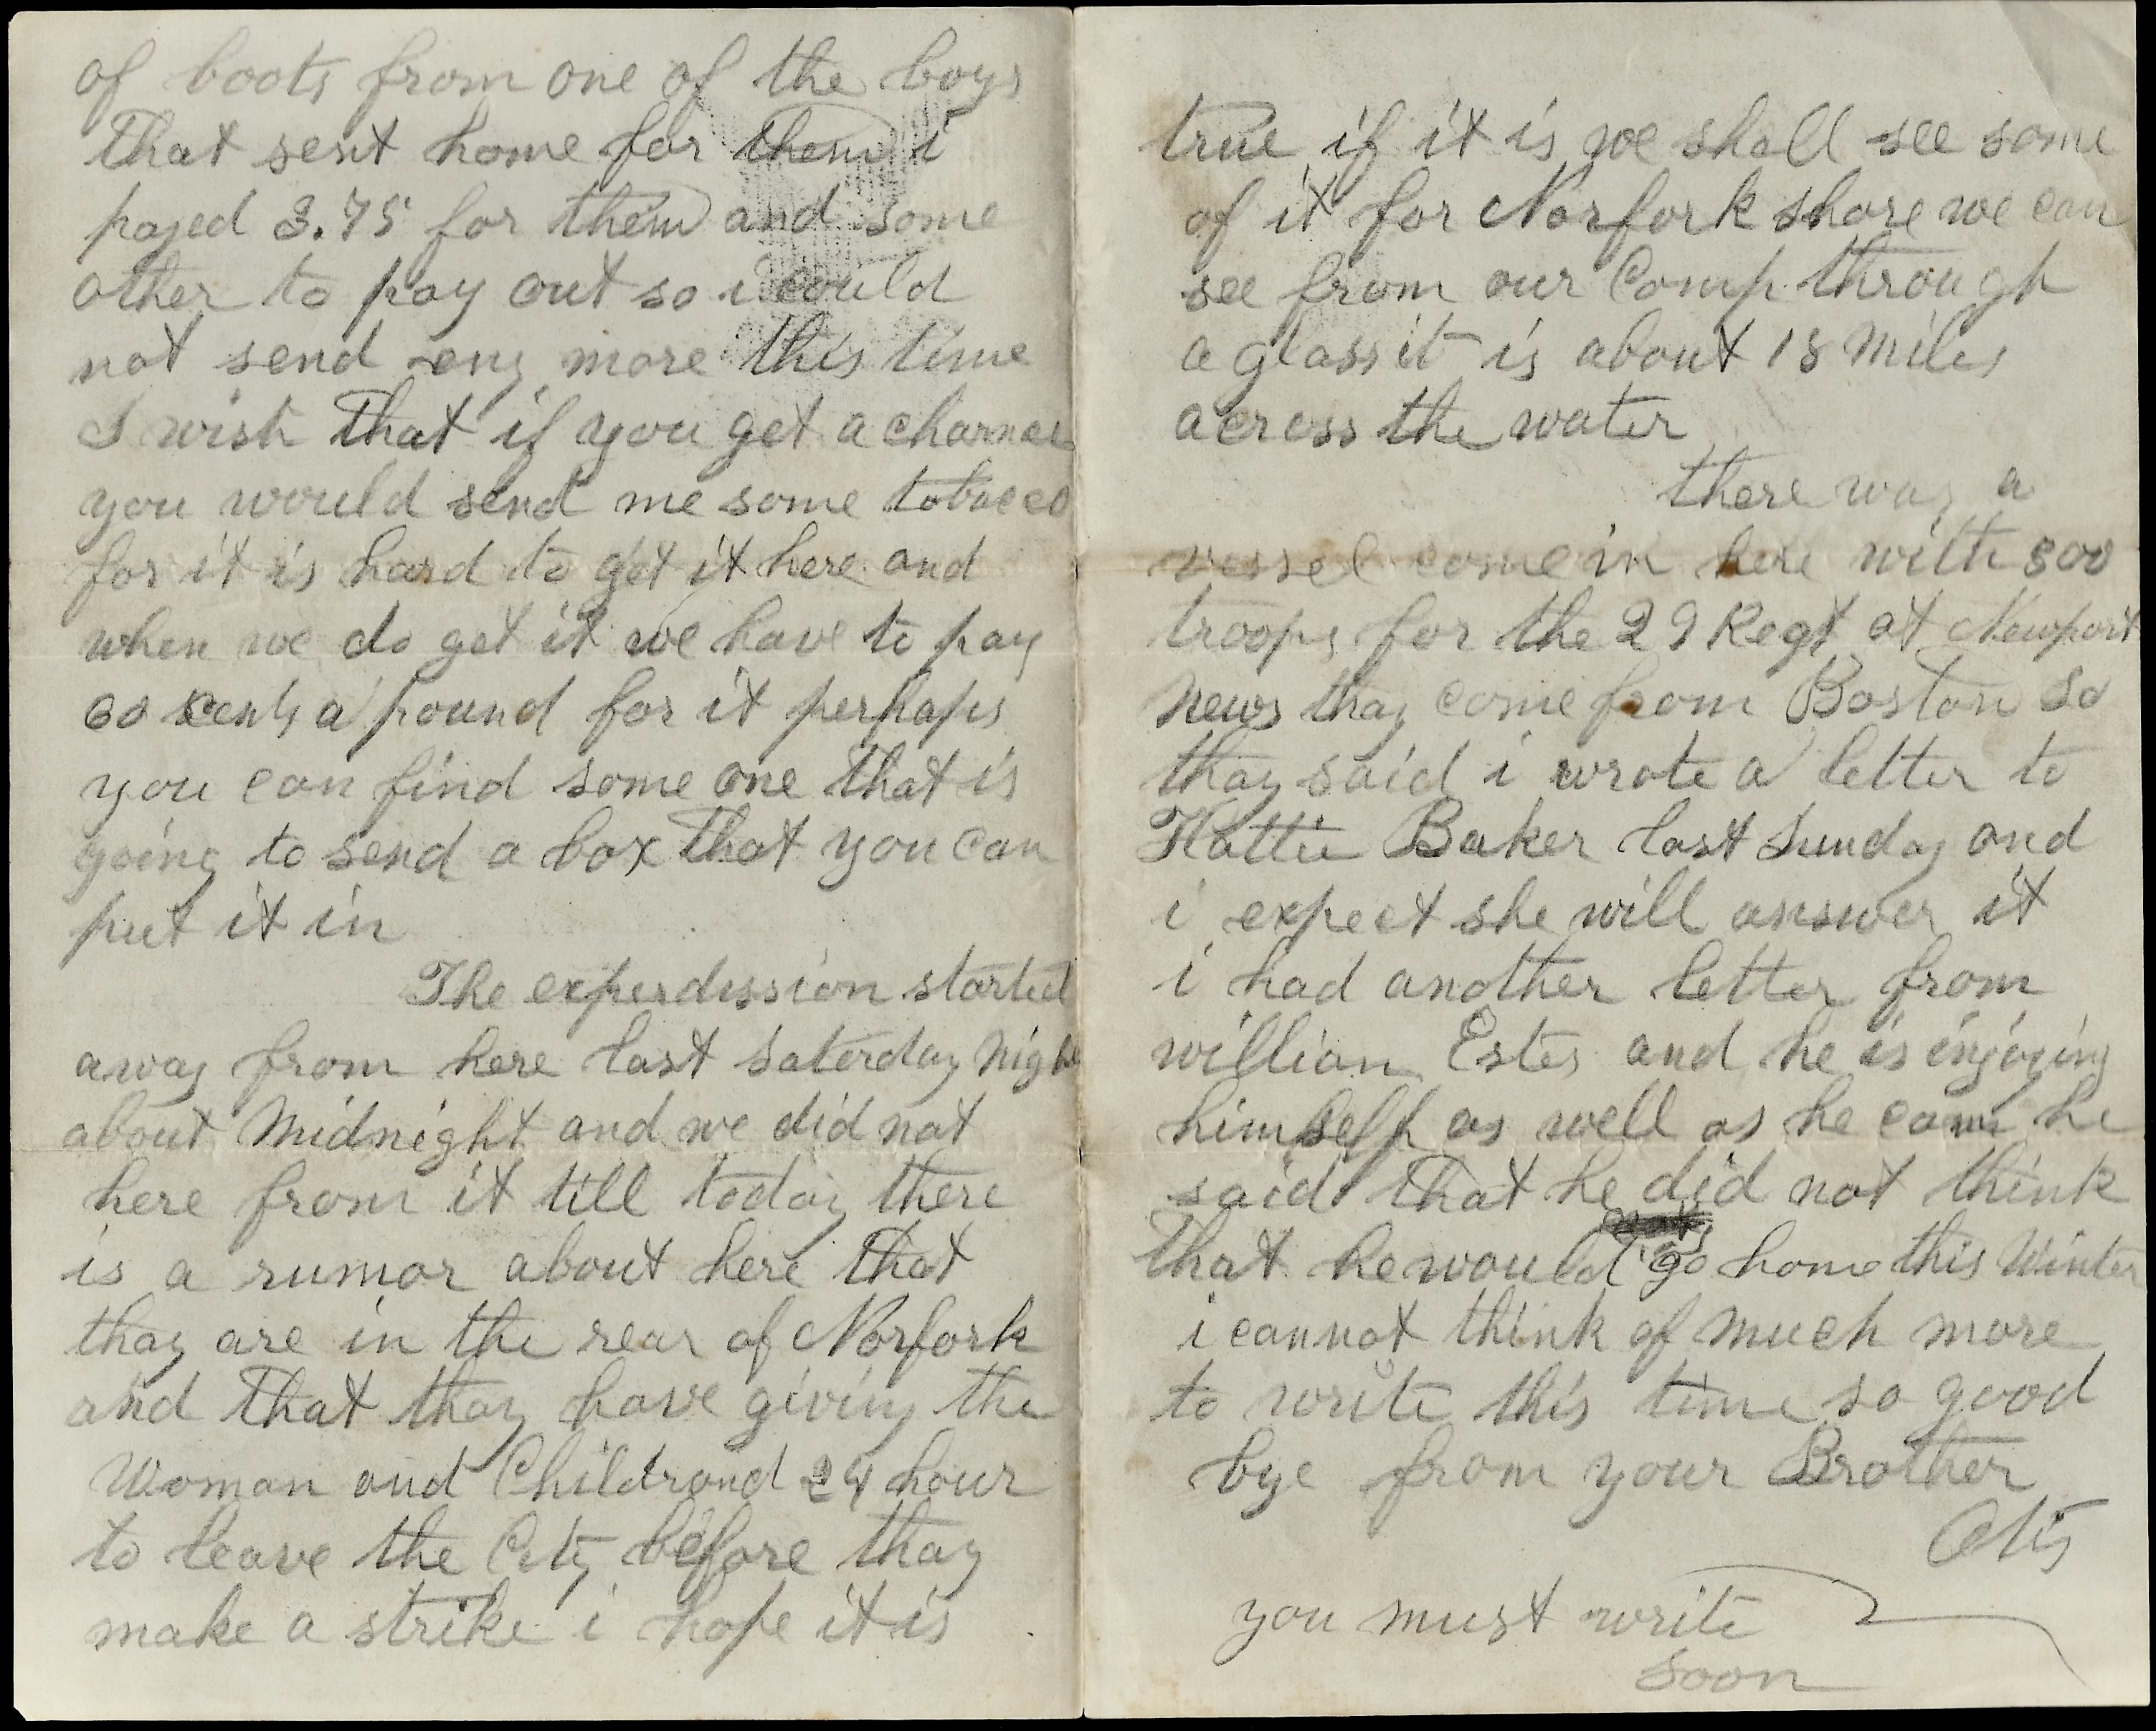 of boots from one of the boys
that sent home for them i
payed 3.75 for them and some
other to pay out so i could
not send eny more this time
I wish that if you get a chance
you would send me some tobacco
for it is hard to get it here and
when we do get it we have to pay
60 cents a pound for it perhaps
you can find some one that is
going to send a box that you can
put it in
The experdission started
away from here last saterday night
about Midnight and we did not
here from it till today there
is a rumor about here that
thay are in the rear of Norfork
and that thay have giving the
Woman and Childrond 24 hour
to leave the City before thay
make a strike i hope it is
true if it is we shall see some
of it for Norfork shore we can
see from our Camp through
a glass it is about 18 Miles
across the water
there was a
vessel come in here with 300
troops for the 29 Regt at Newport
News thay come from Boston so
thay said i wrote a letter to
Hattie Baker last Sunday and
i expect she will answer it
i had another letter from
willian Estes and he is injoying
himself as well as he can he
said that he did not think
that he would go home this Winter
i cannot think of Much more
to write this time so good
bye from your Brother
Otis
you must write
soon